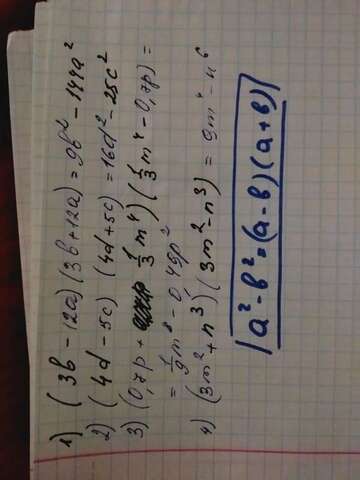 1) (3b - 12a)(3b + 12a) = 9b² - 144a²
2) (4d - 5c) (4d + 5c) = 16d² - 25c²
3) (0,7p + 1/3 m⁴) (1/3 m⁴ - 0,7p) =
= 1/9 m⁸ - 0,49p²
4) (3m² + n³) (3m² - n³) = 9m⁴ - n⁶
a² - b² = (a - b) (a + b)